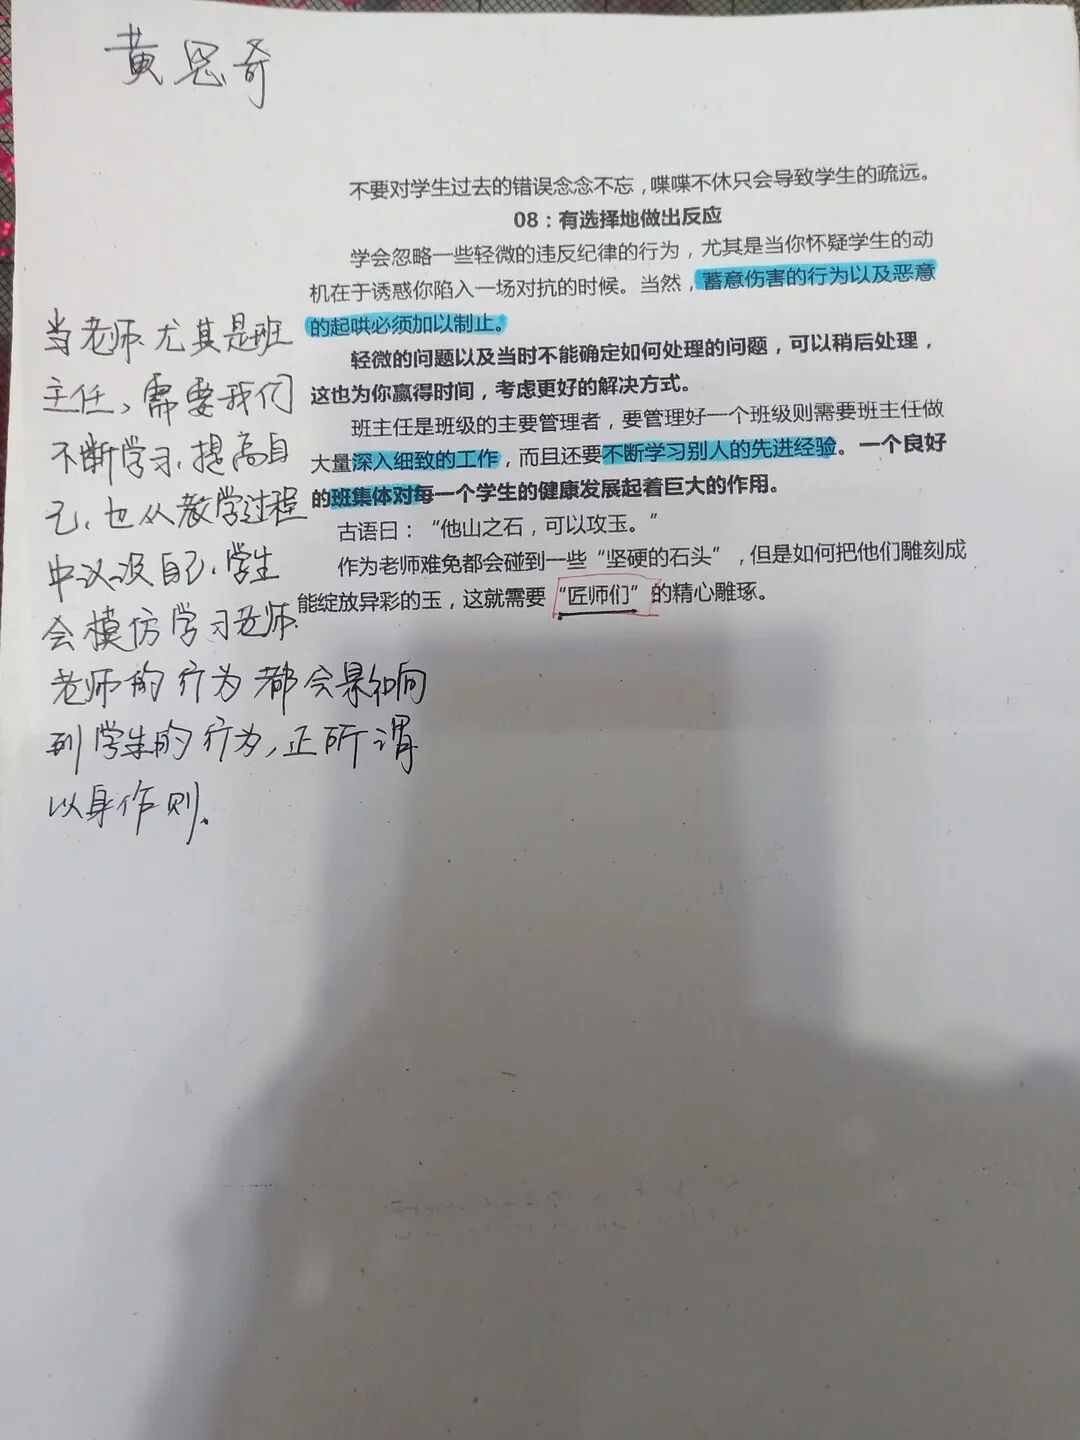 黄思奇
不要对学生过去的错误念念不忘，喋喋不休只会导致学生的疏远。
08：有选择地做出反应
学会忽略一些轻微的违反纪律的行为，尤其是当你怀疑学生的动
机在于诱惑你陷入一场对抗的时候。当然，蓄意伤害的行为以及恶意
的起哄必须加以制止。
轻微的问题以及当时不能确定如何处理的问题，可以稍后处理，
这也为你赢得时间，考虑更好的解决方式。
班主任是班级的主要管理者，要管理好一个班级则需要班主任做
大量深入细致的工作，而且还要不断学习别人的先进经验。一个良好
的班集体对每一个学生的健康发展起着巨大的作用。
古语曰：“他山之石，可以攻玉。”
作为老师难免都会碰到一些“坚硬的石头”，但是如何把他们雕刻成
能绽放异彩的玉，这就需要“匠师们”的精心雕琢。
当老师尤其是班
主任，需要我们
不断学习，提高自
己，也从教学过程
中自己，学生
会模仿学习老师.
老师的行为都会影响
到学生的行为，正所谓
以身作则.